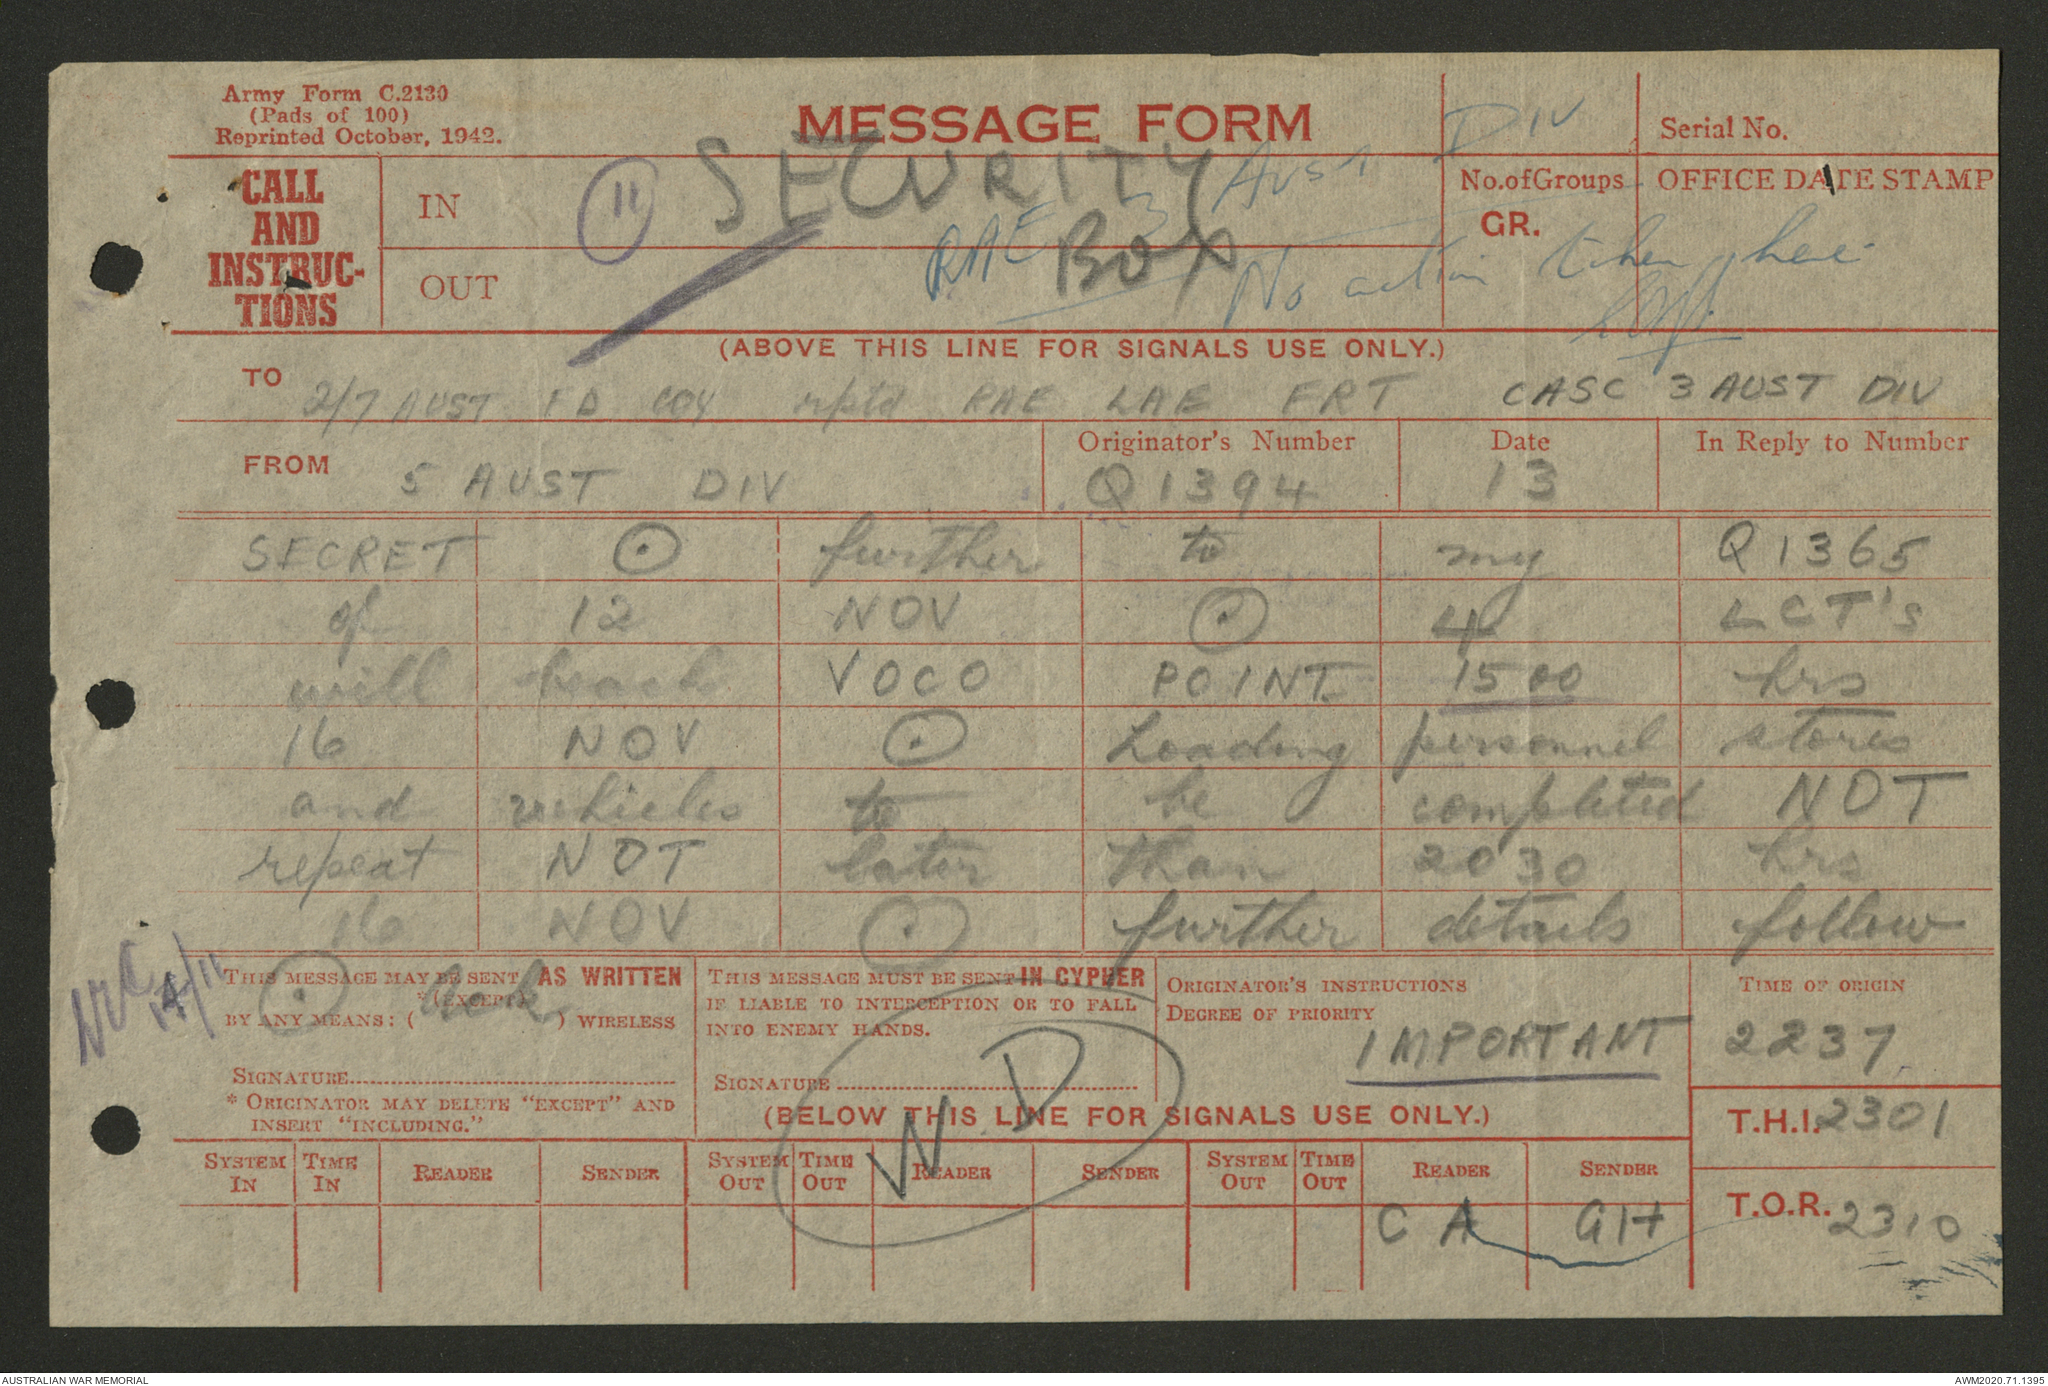 Army Form C.2130
(Pads of 100)
Reprinted October, 1942.
MESSAGE FORM
DIV
Serial No.
CALL AND INSTRUC-TIONS
IN
11
SECURITY
BOX
RAE 3 AUST
No. of Groups
GR.
OFFICE DATE STAMP
OUT
No action taken here
(ABOVE THIS LINE FOR SIGNALS USE ONLY.)
TO 2/7 AUST FD COY rptd RAE LAE FRT CASC 3 AUST DIV
FROM 5 AUST DIV
Originator's Number Q1394
Date 13
In Reply to Number
SECRET ⊙ further to my Q1365
of 12 NOV ⊙ 4 LCT's
will beach VOCO POINT 1500 hrs
16 NOV ⊙ Loading personnel stores
and vehicles to be completed NOT
repeat NOT later than 2030 hrs
16 NOV ⊙ further details follow
⊙ Ack
14/11
THIS MESSAGE MAY BE SENT AS WRITTEN
*(EXCEPT)
BY ANY MEANS: ( ) WIRELESS
SIGNATURE
* ORIGINATOR MAY DELETE "EXCEPT" AND
INSERT "INCLUDING."
THIS MESSAGE MUST BE SENT IN CYPHER
IF LIABLE TO INTERCEPTION OR TO FALL
INTO ENEMY HANDS.
SIGNATURE
W D
ORIGINATOR'S INSTRUCTIONS
DEGREE OF PRIORITY
IMPORTANT
TIME OF ORIGIN
2237
(BELOW THIS LINE FOR SIGNALS USE ONLY.)
T.H.I. 2301
SYSTEM IN TIME IN READER SENDER SYSTEM OUT TIME OUT READER SENDER SYSTEM OUT TIME OUT READER SENDER
CA GH
T.O.R. 2310
AUSTRALIAN WAR MEMORIAL
AWM2020.71.1395